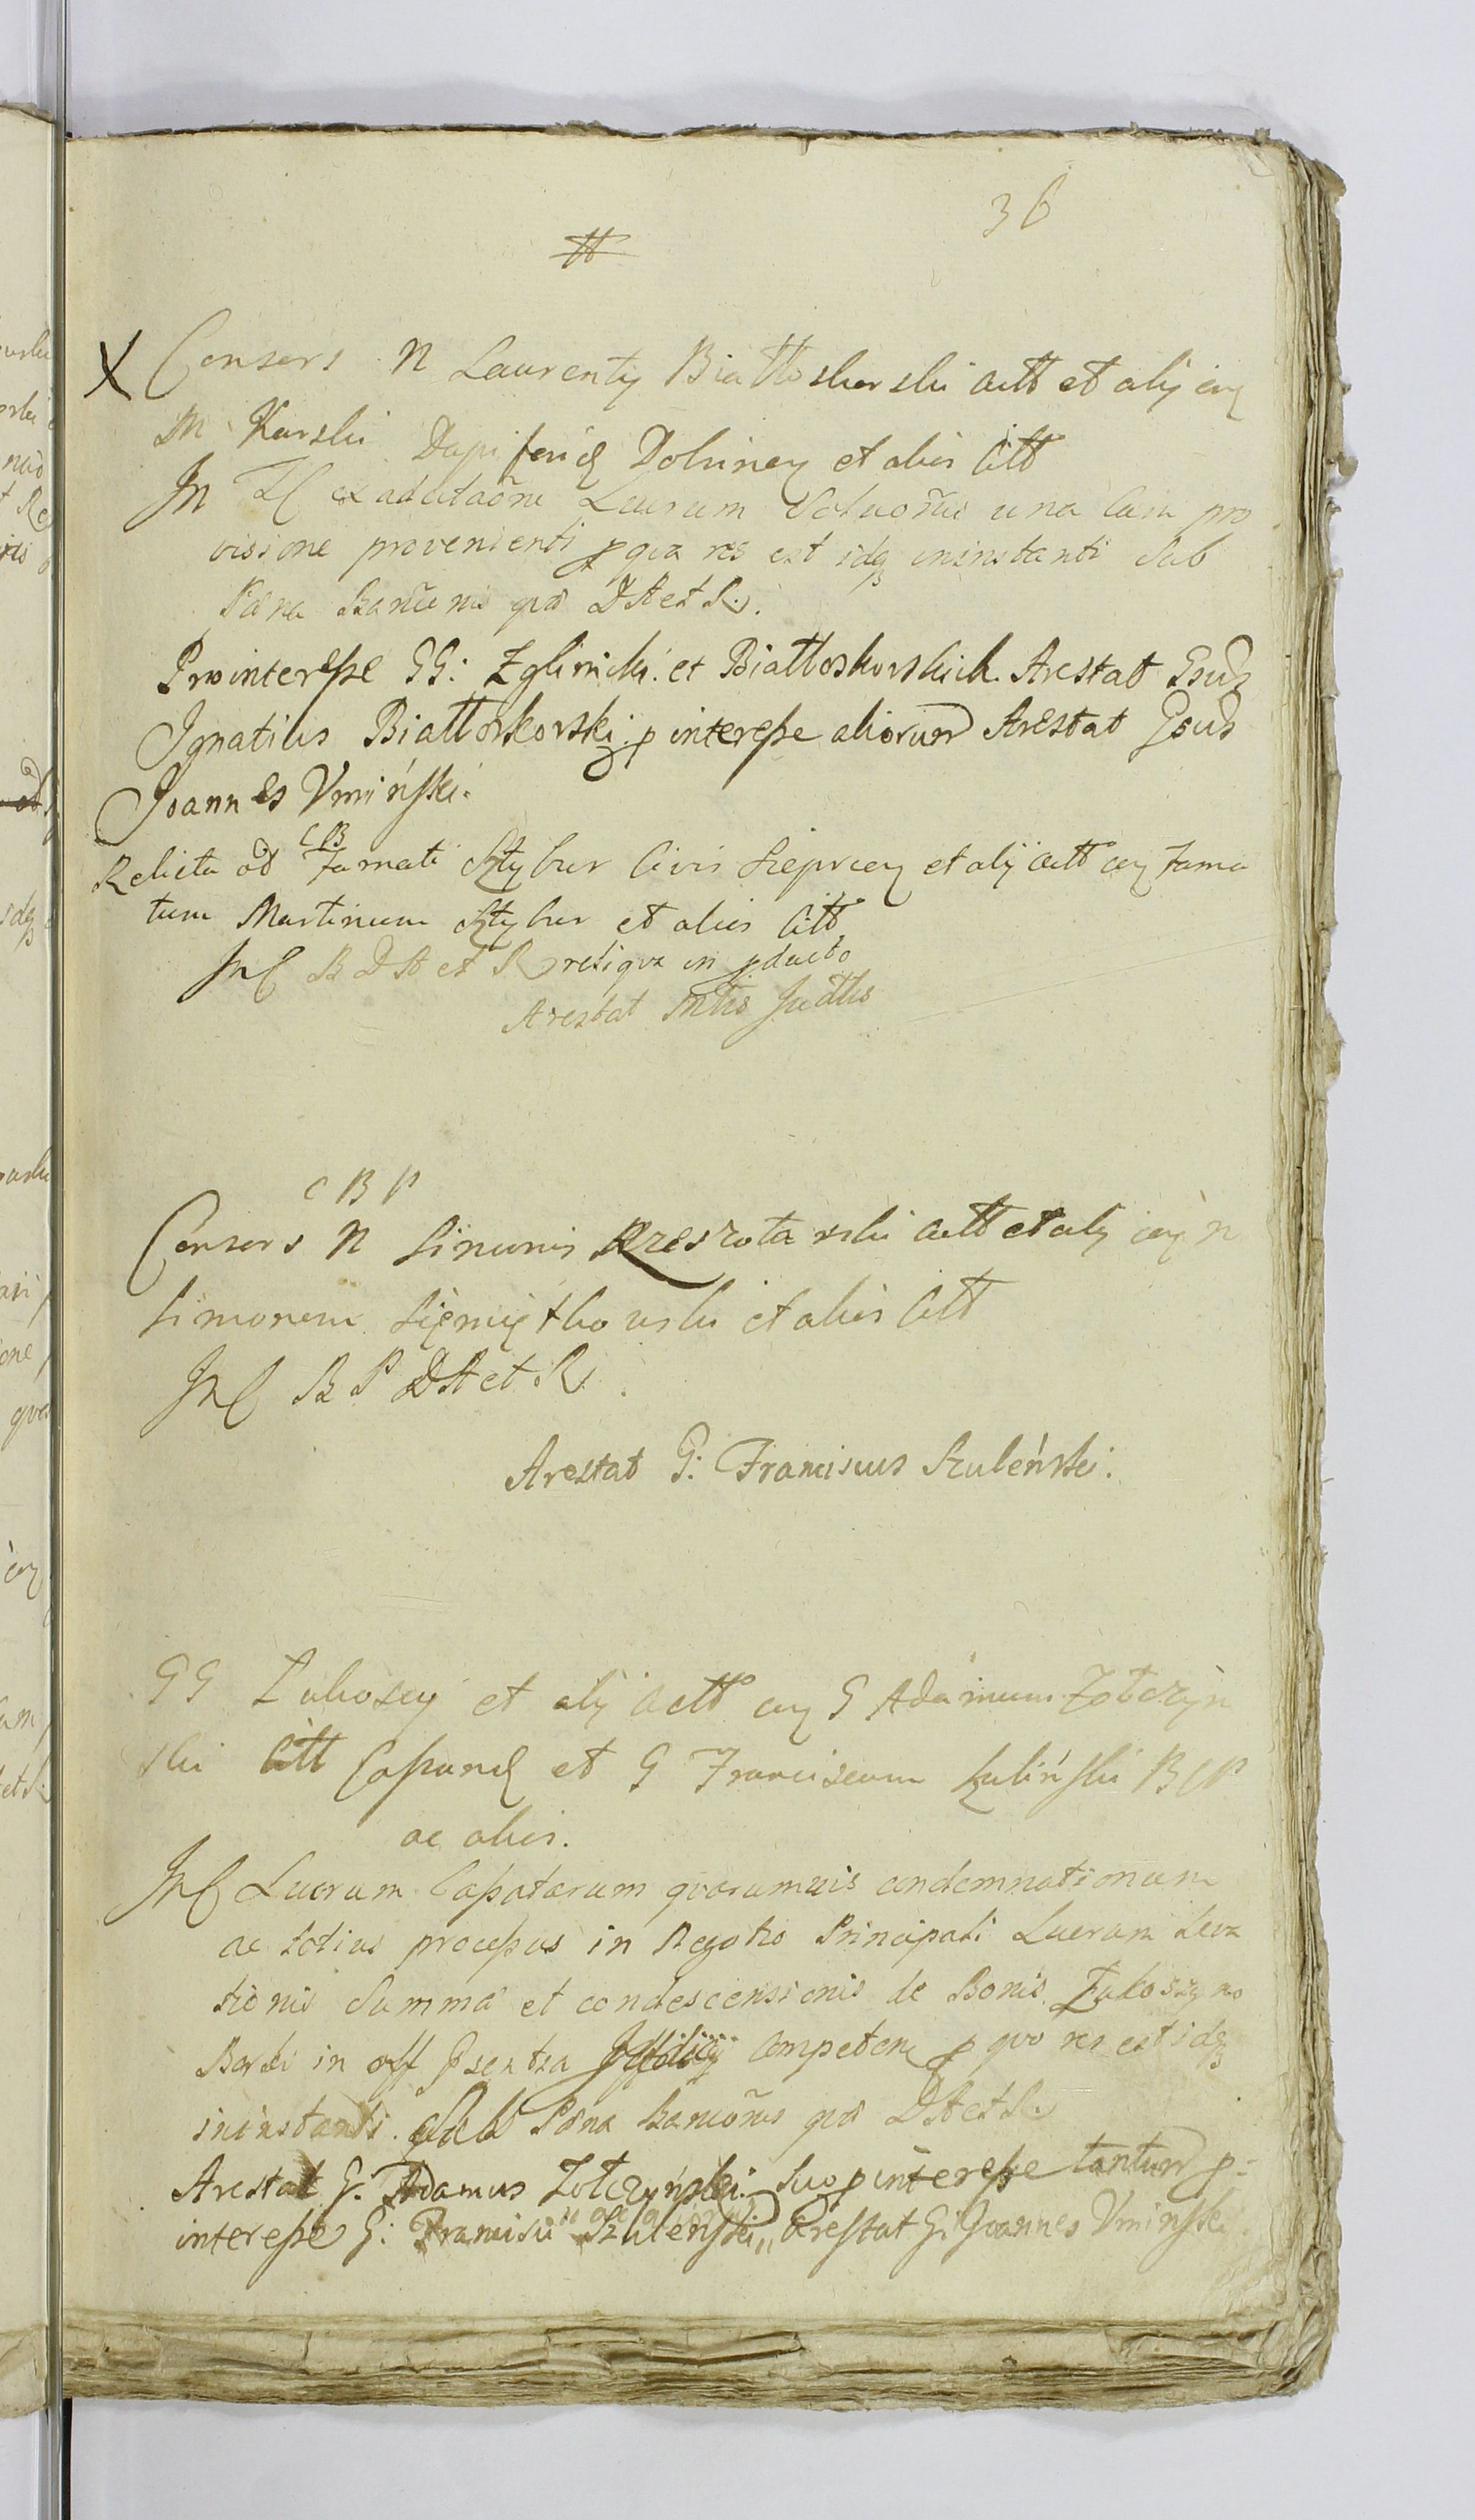 36
tt
X Consors N Laurentÿ Biattoskorski Actt et alÿ cq
M Karski Dapiferiq Dobrineq et alios Citt
In ex adcitaõne Lucrum Soluoñis una Cum pro
visione provenienti p qva res est idq ininstanti Sub
Pæna Banõnis qvã DA et R.
Pro interesse GG: Zglinicki. et Biattoskorskich. Arestat Gsus
Ignatius Biattoskorski: p interesse aliorum Arestat Gsus
Joannes Vmiński.
CB
Relicta od Famati Sztybur Civis Sieprceq et alÿ Actt cq Fama
tum Martinum Sztybur et alios Citt
InC B DA et R reliqva in pducto
Arestat Mtrs Judtls
C B P
Consors N Simonis Rzeszotarski Actt et alÿ cq N
Simonem Sięmiętkowski et alios Citt
InC B P DA et R.
Arestat G: Franciscus Szuleński:
GG Łukoscy et alÿ Actt cq G Adamum Zołczÿn
ski Citt Cassandq et G Franciscum Szuliński B C P
ac alios.
InC Lucrum Cassatarum qvorumvis condemnationum
ac totius processus in Negotio Principali Lucrum Leva
tionis Summã et condescensionis de Bonis Łukoszyno
Borki in off psentia Officÿ Competen p qvo res est idq
ininstanti. Sub Pæna Banõnis qvã DA et R.
Arestat G. Adamus Zołczyński: Suo p interesse tantum p=
interesse G: Francisci Szuleński,, Arestat G: Joannes Vminski.